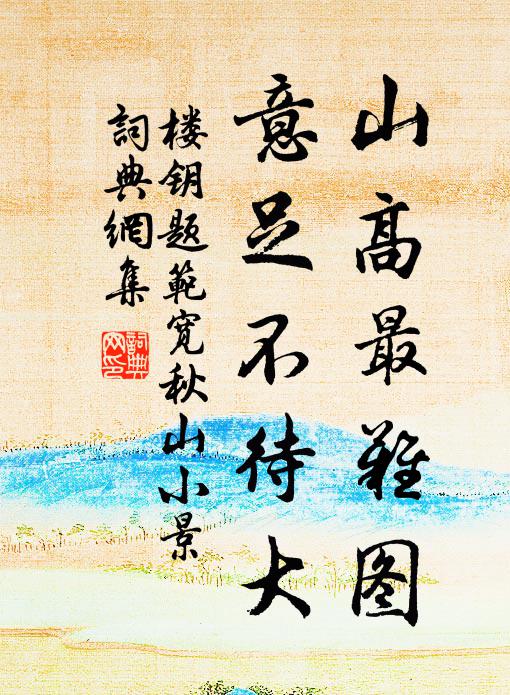 山高最难图
意足不待大
楼钥题範宽秋山小景
詞典網集
詞典
网印